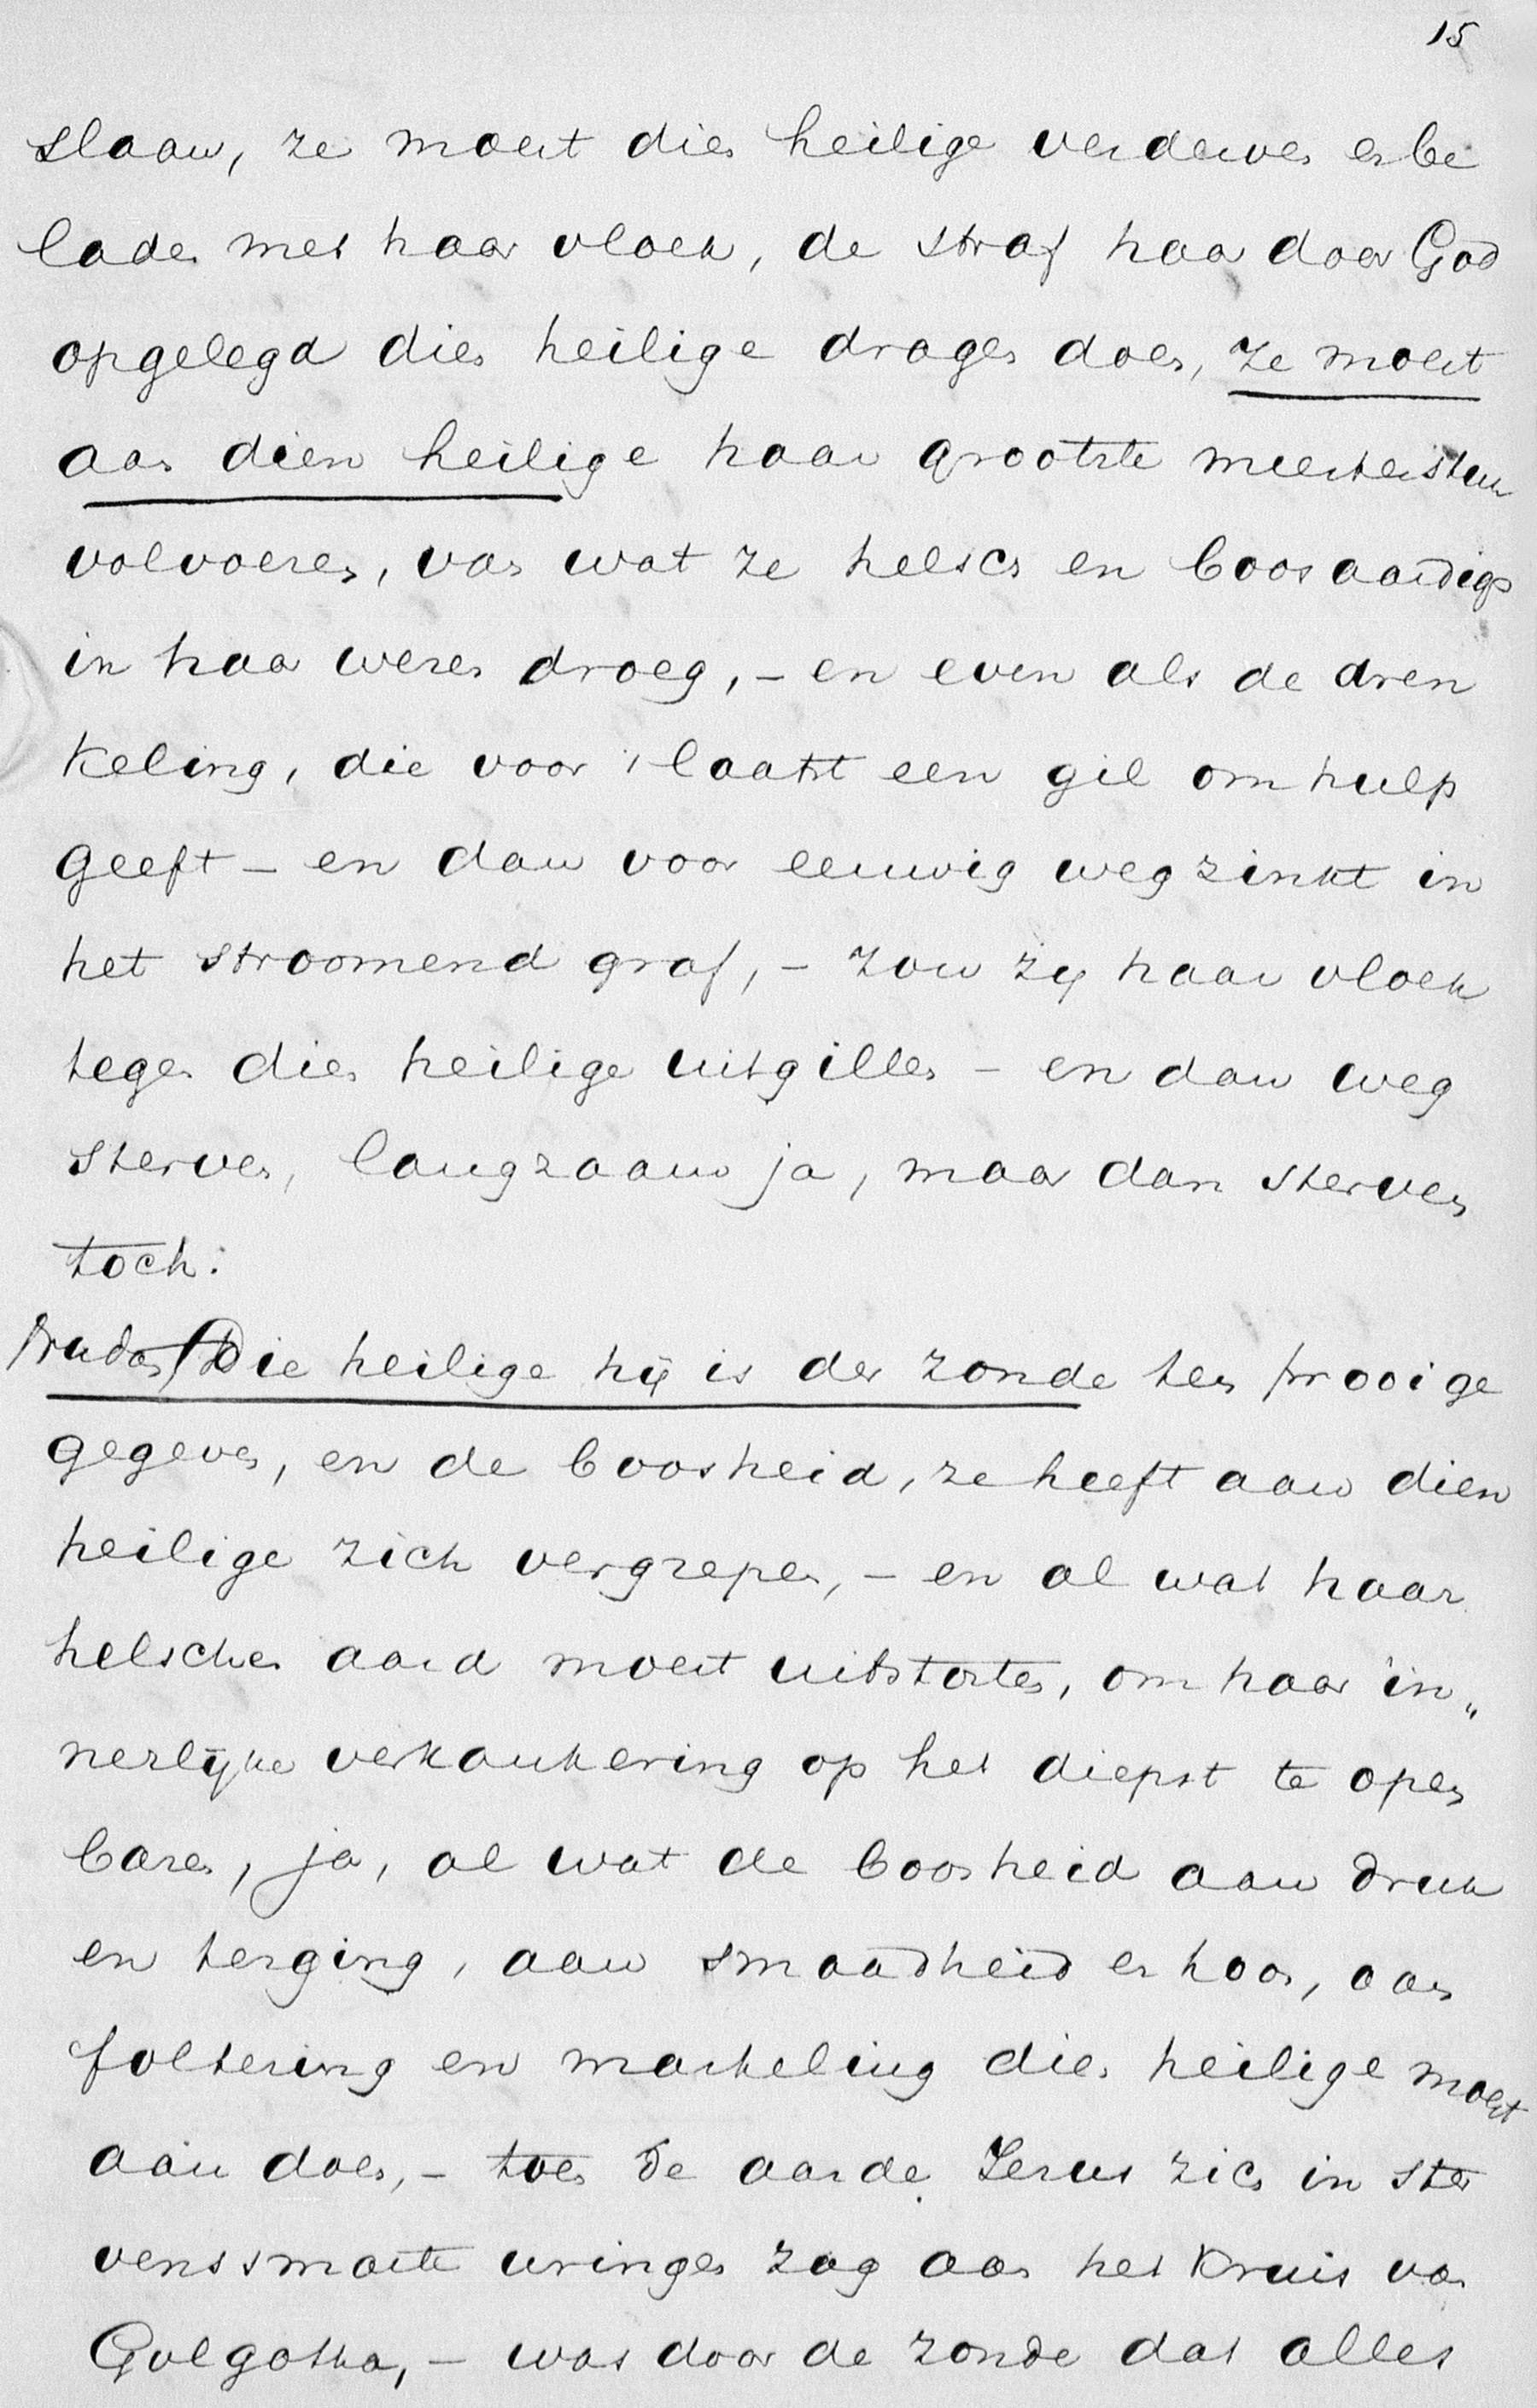 15
slaan, ze moest dien heilige verderven en be
laden met haar vloek, de straf haar door God
opgelegd dien heilige dragen doen, ze moest
aan dien heilige haar grootste meesterstuk
volvoeren, van wat ze helsch en boosaardigs
in haar wezen droeg, - en even als de dren
keling, die voor 't laatst een gil om hulp
geeft - en dan voor eeuwig wegzinkt in
het stroomend graf, - zou zij haar vloek
tegen dien heilige uitgillen - en dan weg
sterven, langzaam ja, maar dan sterven
toch.
Die heilige hij is der zonde ten prooi ge
gegeven, en de boosheid, ze heeft aan dien
heilige zich vergrepen, - en al wat haar
helschen aard moest uitstorten, om haar in„
nerlijke verkankering op het diepst te open
baren, ja, al wat de boosheid aan druk
en terging, aan smaadheid en hoon, aan
foltering en marteling dien heilige moest
aan doen, - toen de aarde Jezus zich in ster
venssmarte wringen zag aan het kruis van
Golgotha, - was door de zonde dat alles